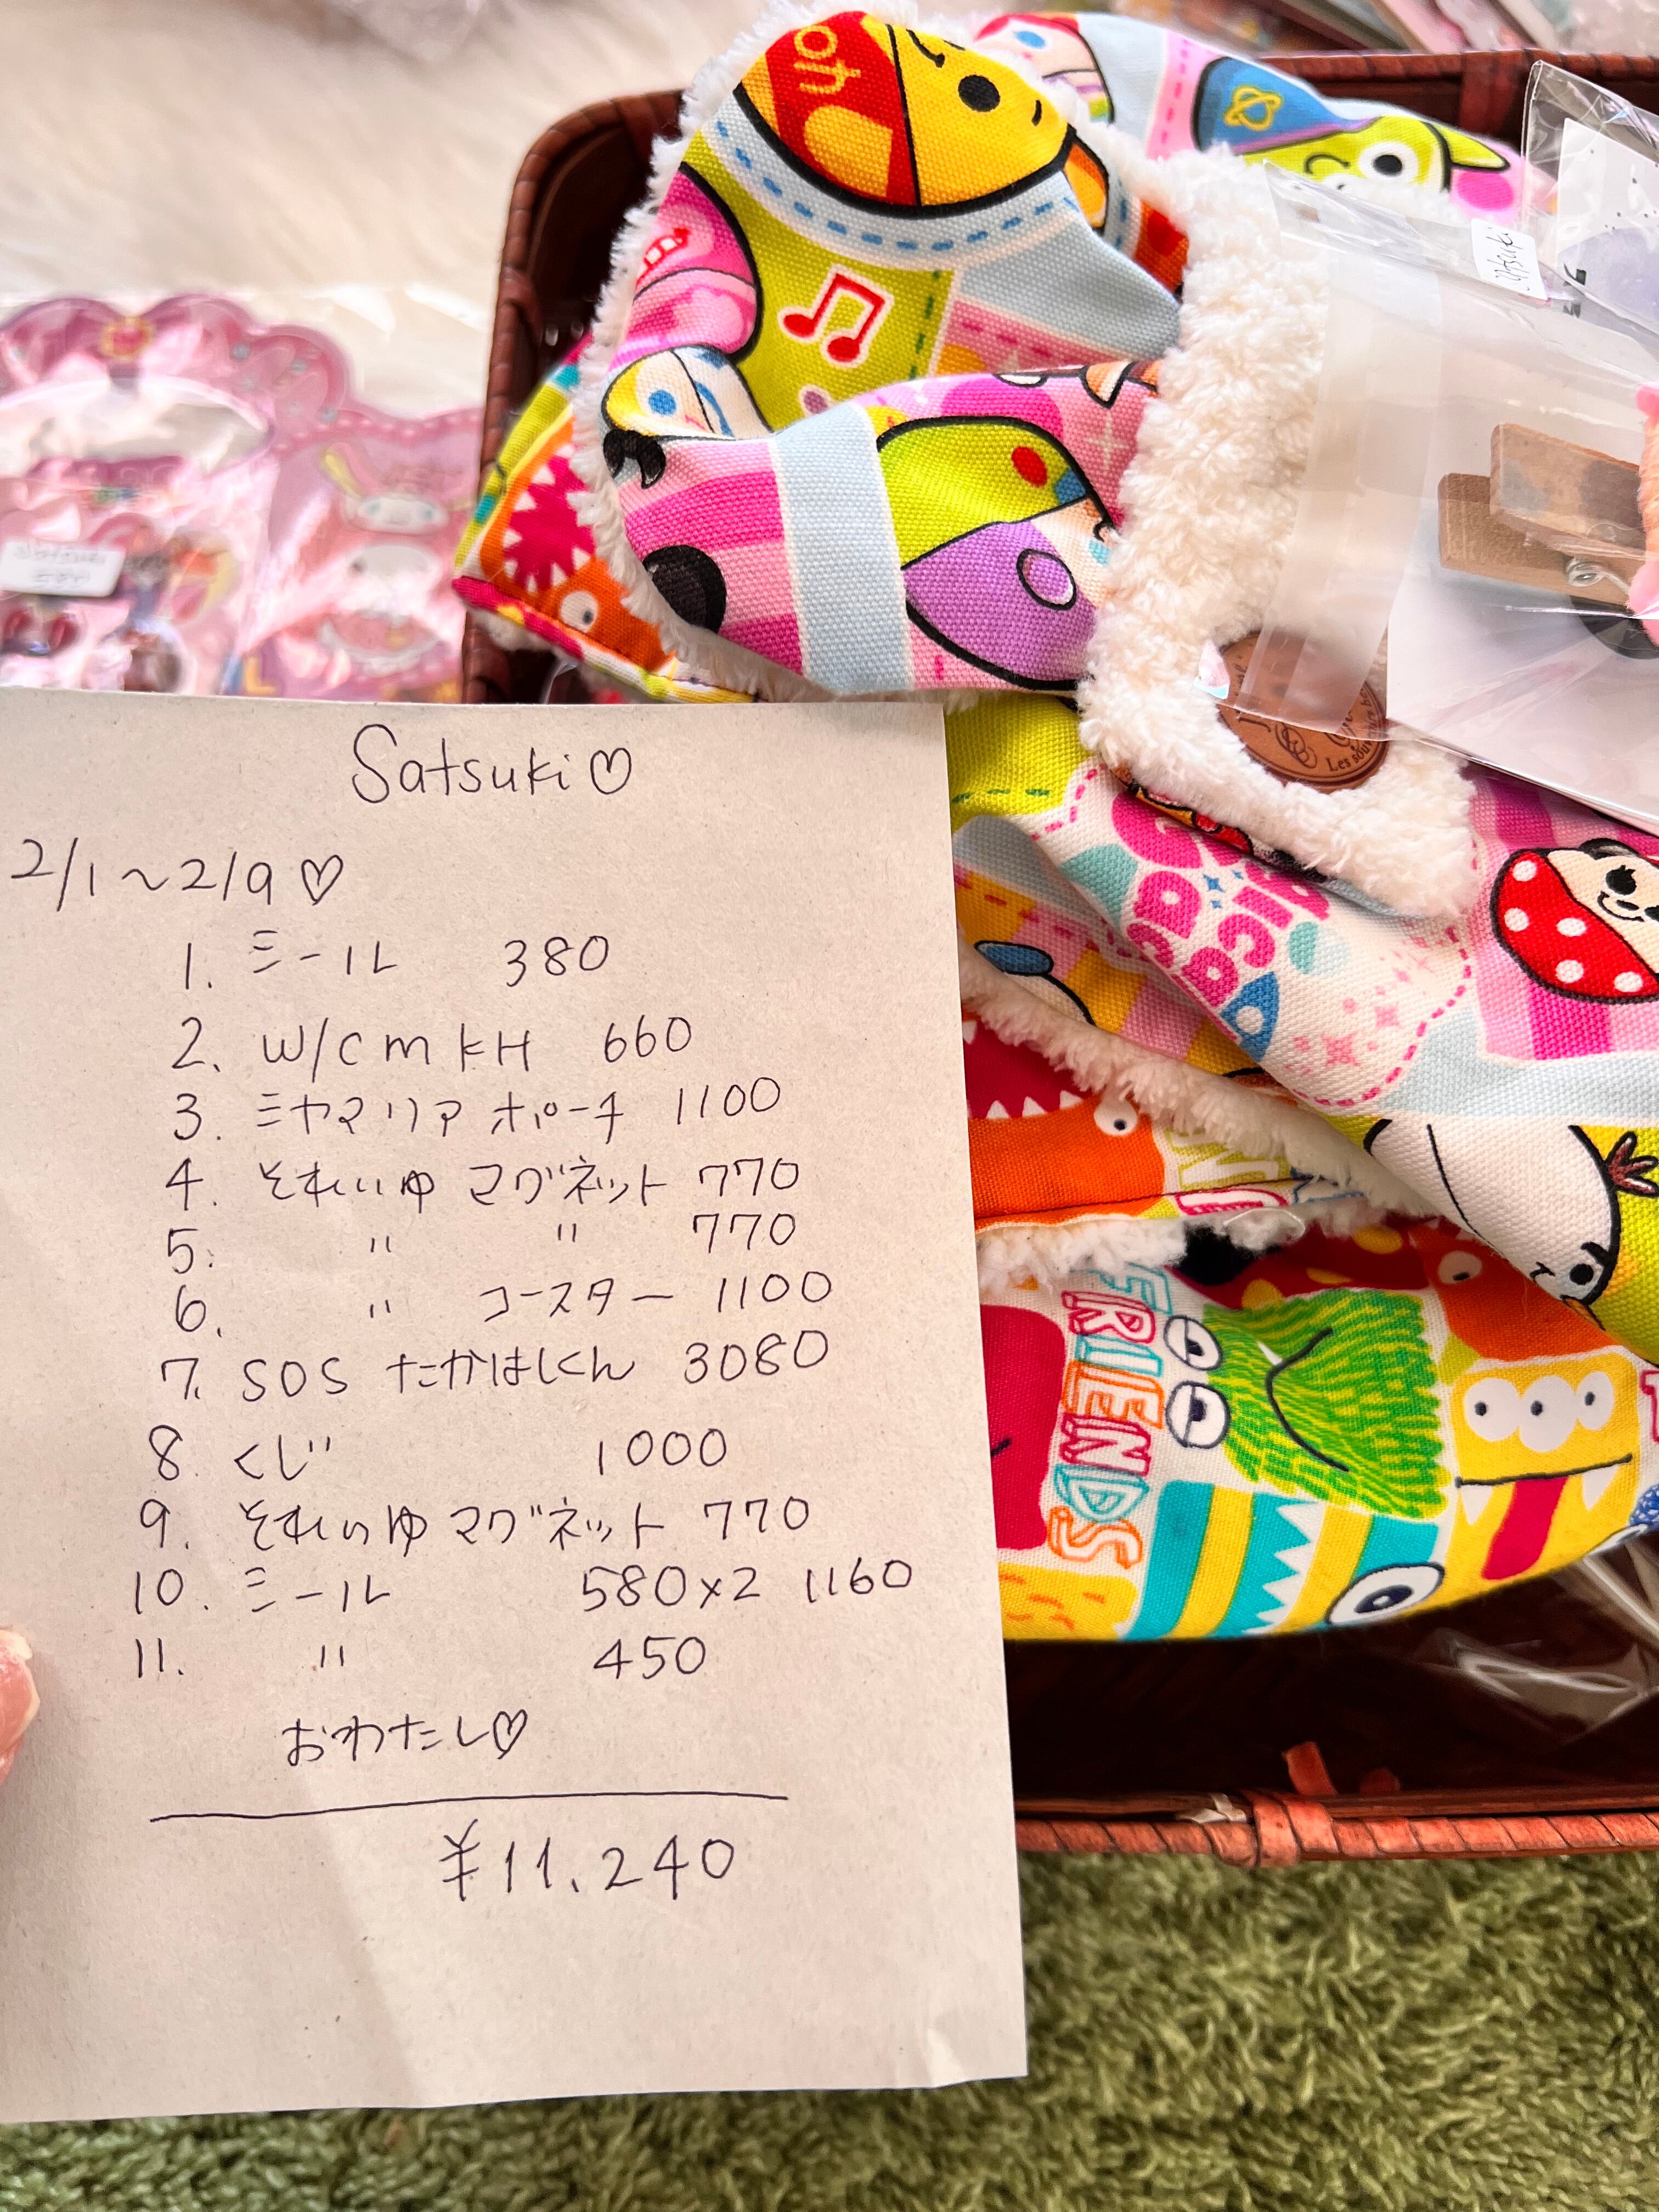 Satsuki♡
2/1～2/9♡
1. シール 380
2. W/C m KH 660
3. ミヤマリア ポーチ 1100
4. それいゆ マグネット 770
5. 〃 〃 770
6. 〃 コースター 1100
7. SOS たかはしくん 3080
8. くじ 1000
9. それいゆ マグネット 770
10. シール 580×2 1160
11. 〃 450
おわたし♡
¥11.240
FRIENDS
Satsuki
Les sou